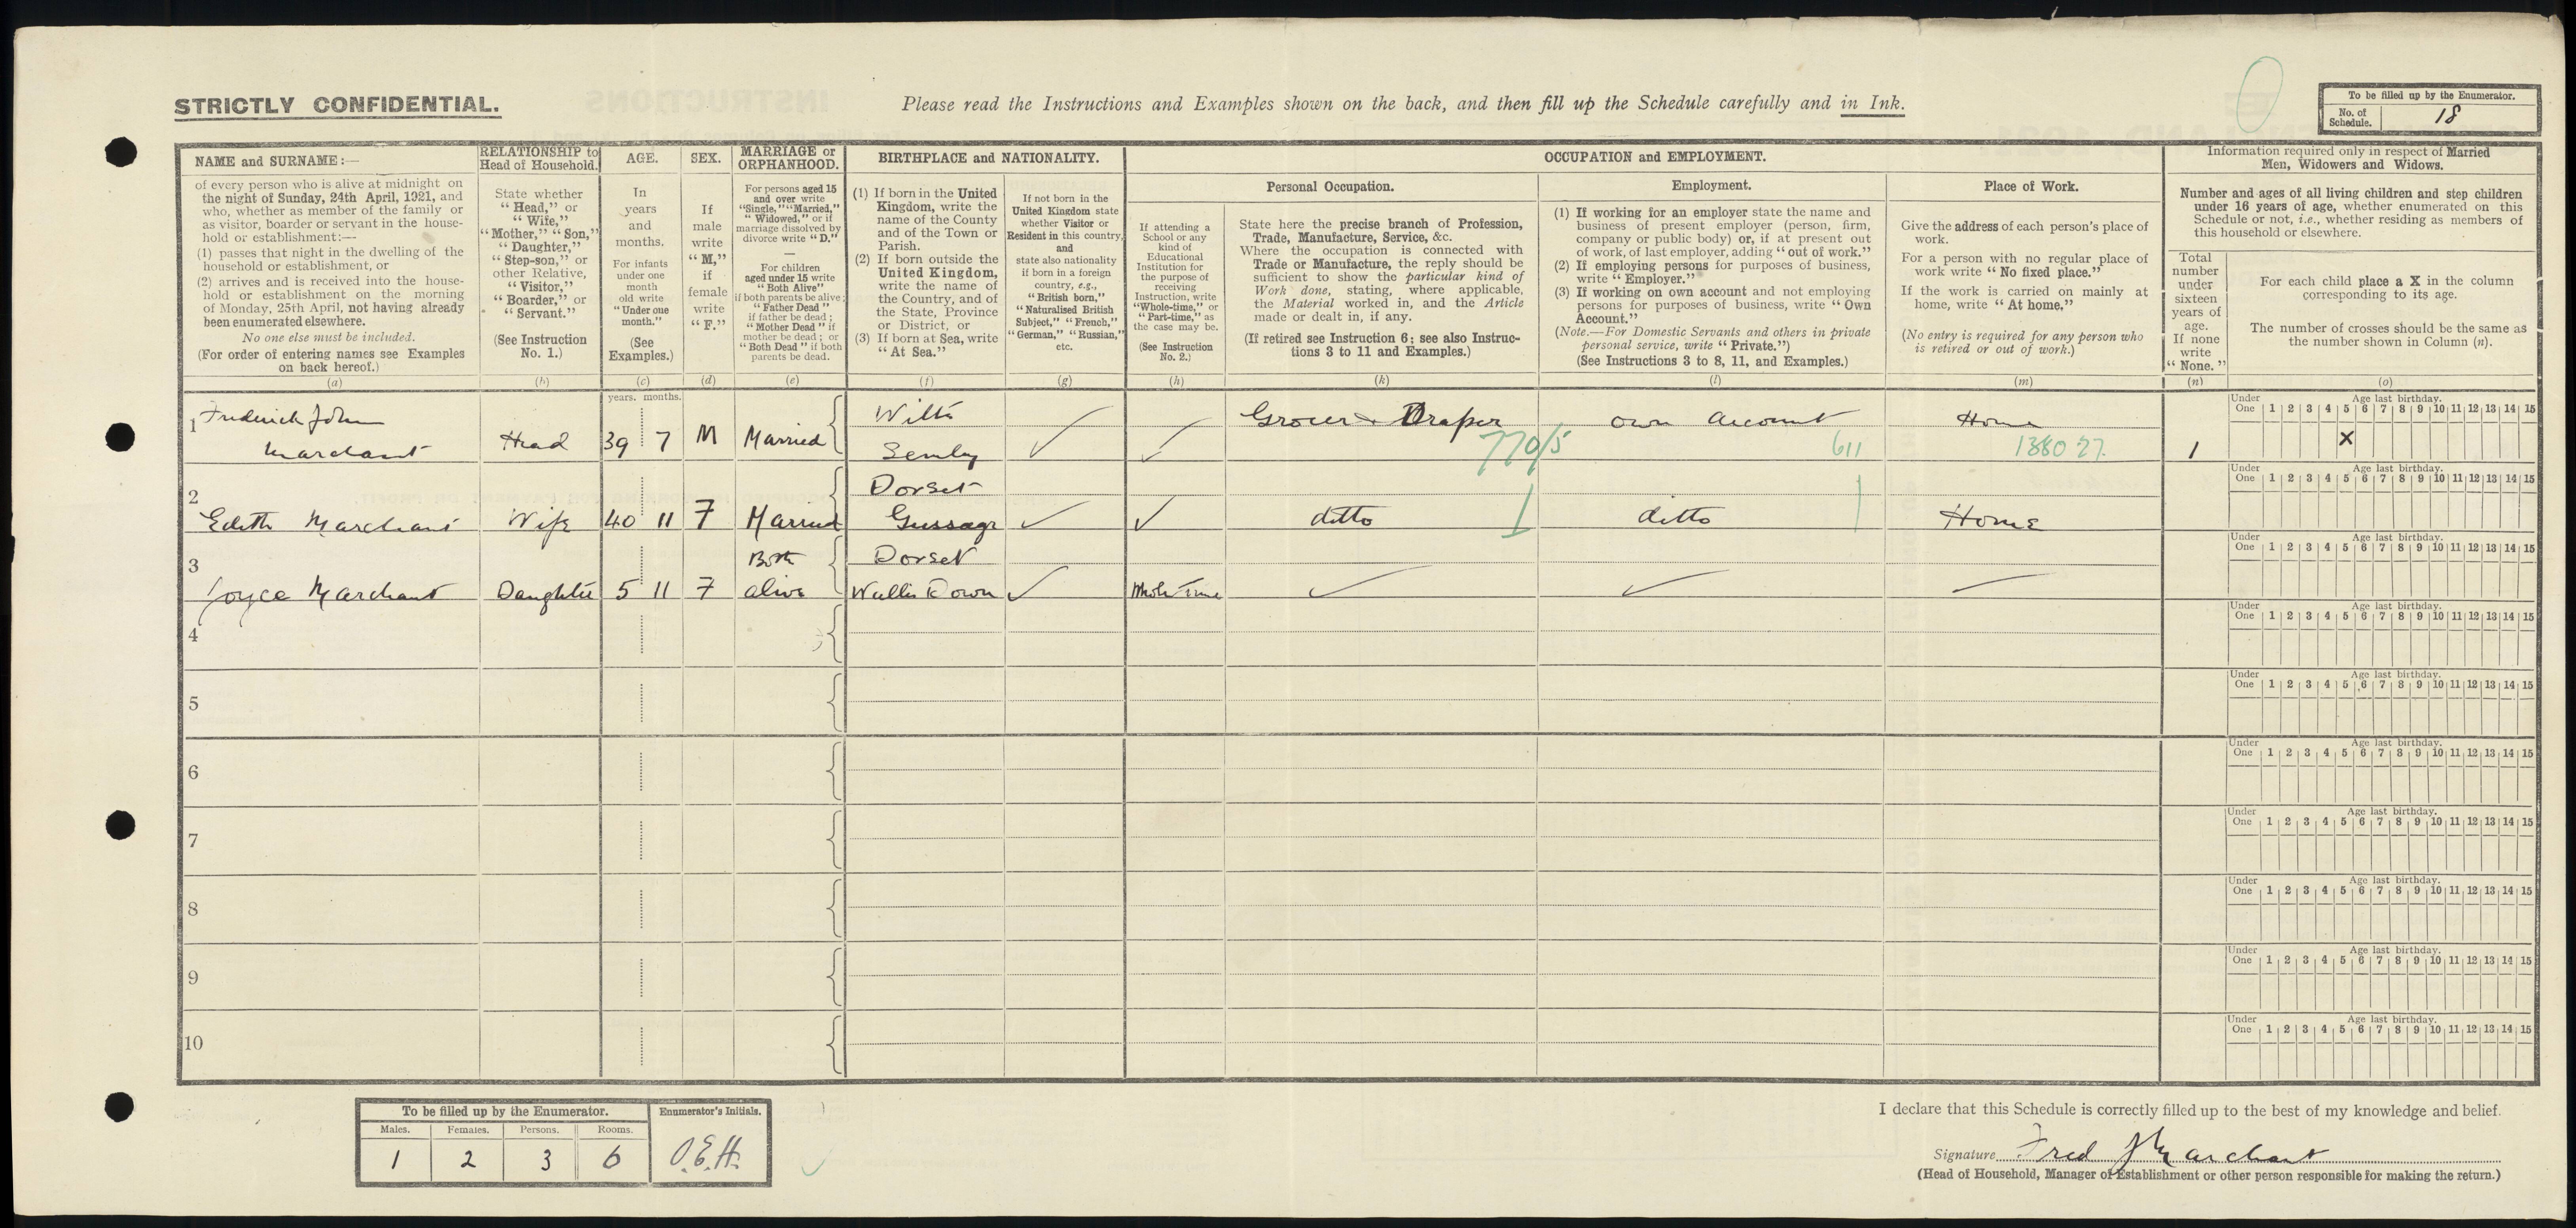 STRICTLY CONFIDENTIAL.
Please read the Instructions and Examples shown on the back, and then fill up the Schedule carefully and in Ink.
To be filled up by the Enumerator.
No. of Schedule. 18
NAME and SURNAME:—
of every person who is alive at midnight on
the night of Sunday, 24th April, 1921, and
who, whether as member of the family or
as visitor, boarder or servant in the house-
hold or establishment:—
(1) passes that night in the dwelling of the
household or establishment, or
(2) arrives and is received into the house-
hold or establishment on the morning
of Monday, 25th April, not having already
been enumerated elsewhere.
No one else must be included.
(For order of entering names see Examples
on back hereof.)
(a)
RELATIONSHIP to
Head of Household.
State whether
"Head," or
"Wife,"
"Mother," "Son,"
"Daughter,"
"Step-son," or
other Relative,
"Visitor,"
"Boarder," or
"Servant."
(See Instruction
No. 1.)
(b)
AGE.
In
years
and
months.
For infants
under one
month
old write
"Under one
month."
(See
Examples.)
(c)
SEX.
If
male
write
"M,"
if
female
write
"F."
(d)
MARRIAGE or
ORPHANHOOD.
For persons aged 15
and over write
"Single," "Married,"
"Widowed," or if
marriage dissolved by
divorce write "D."
—
For children
aged under 15 write
"Both Alive"
if both parents be alive;
"Father Dead"
if father be dead;
"Mother Dead" if
mother be dead; or
"Both Dead" if both
parents be dead.
(e)
BIRTHPLACE and NATIONALITY.
(1) If born in the United
Kingdom, write the
name of the County
and of the Town or
Parish.
(2) If born outside the
United Kingdom,
write the name of
the Country, and of
the State, Province
or District, or
(3) If born at Sea, write
"At Sea."
(f)
If not born in the
United Kingdom state
whether Visitor or
Resident in this country,
and
state also nationality
if born in a foreign
country, e.g.,
"British born,"
"Naturalised British
Subject," "French,"
"German," "Russian,"
etc.
(g)
OCCUPATION and EMPLOYMENT.
If attending a
School or any
kind of
Educational
Institution for the
purpose of
receiving
Instruction, write
"Whole-time," or
"Part-time," as
the case may be.
(See Instruction
No. 2.)
(h)
Personal Occupation.
State here the precise branch of Profession,
Trade, Manufacture, Service, &c.
Where the occupation is connected with
Trade or Manufacture, the reply should be
sufficient to show the particular kind of
Work done, stating, where applicable,
the Material worked in, and the Article
made or dealt in, if any.
(If retired see Instruction 6; see also Instruc-
tions 3 to 11 and Examples.)
(k)
Employment.
(1) If working for an employer state the name and
business of present employer (person, firm,
company or public body) or, if at present out
of work, of last employer, adding "out of work."
(2) If employing persons for purposes of business,
write "Employer."
(3) If working on own account and not employing
persons for purposes of business, write "Own
Account."
(Note.—For Domestic Servants and others in private
personal service, write "Private.")
(See Instructions 3 to 8, 11, and Examples.)
(l)
Place of Work.
Give the address of each person's place of
work.
For a person with no regular place of
work write "No fixed place."
If the work is carried on mainly at
home, write "At home."
(No entry is required for any person who
is retired or out of work.)
(m)
Information required only in respect of Married
Men, Widowers and Widows.
Number and ages of all living children and step children
under 16 years of age, whether enumerated on this
Schedule or not, i.e., whether residing as members of
this household or elsewhere.
Total
number
under
sixteen
years of
age.
If none
write
"None."
(n)
For each child place a X in the column
corresponding to its age.
The number of crosses should be the same as
the number shown in Column (n).
(o)
years. months.
1 Frederick John
Marchant Head 39 7 M Married Wilts
Semley Grocer & Draper 770/5 own account 611 Home 1380 27. 1 X
Under One Age last birthday. 1 2 3 4 5 6 7 8 9 10 11 12 13 14 15
2 Dorset
Edith Marchant Wife 40 11 F Married Gussage ditto ditto Home
Under One Age last birthday. 1 2 3 4 5 6 7 8 9 10 11 12 13 14 15
3 Both Dorset
Joyce Marchant Daughter 5 11 F alive Wallis Down Whole Time
Under One Age last birthday. 1 2 3 4 5 6 7 8 9 10 11 12 13 14 15
4
Under One Age last birthday. 1 2 3 4 5 6 7 8 9 10 11 12 13 14 15
5
Under One Age last birthday. 1 2 3 4 5 6 7 8 9 10 11 12 13 14 15
6
Under One Age last birthday. 1 2 3 4 5 6 7 8 9 10 11 12 13 14 15
7
Under One Age last birthday. 1 2 3 4 5 6 7 8 9 10 11 12 13 14 15
8
Under One Age last birthday. 1 2 3 4 5 6 7 8 9 10 11 12 13 14 15
9
Under One Age last birthday. 1 2 3 4 5 6 7 8 9 10 11 12 13 14 15
10
Under One Age last birthday. 1 2 3 4 5 6 7 8 9 10 11 12 13 14 15
To be filled up by the Enumerator.
Males. Females. Persons. Rooms.
1 2 3 6
Enumerator's Initials.
O.E.H.
I declare that this Schedule is correctly filled up to the best of my knowledge and belief.
Signature Fred J Marchant
(Head of Household, Manager of Establishment or other person responsible for making the return.)